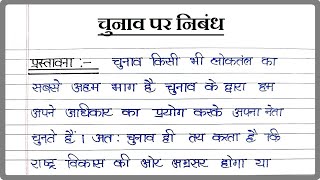 चुनाव पर निबंध
प्रस्तावना :- चुनाव किसी भी लोकतंत्र का
सबसे अहम भाग है चुनाव के द्वारा हम
अपने अधिकार का प्रयोग करके अपना नेता
चुनते हैं। अतः चुनाव ही तय करता है कि
राष्ट्र विकास की ओर अग्रसर होगा या